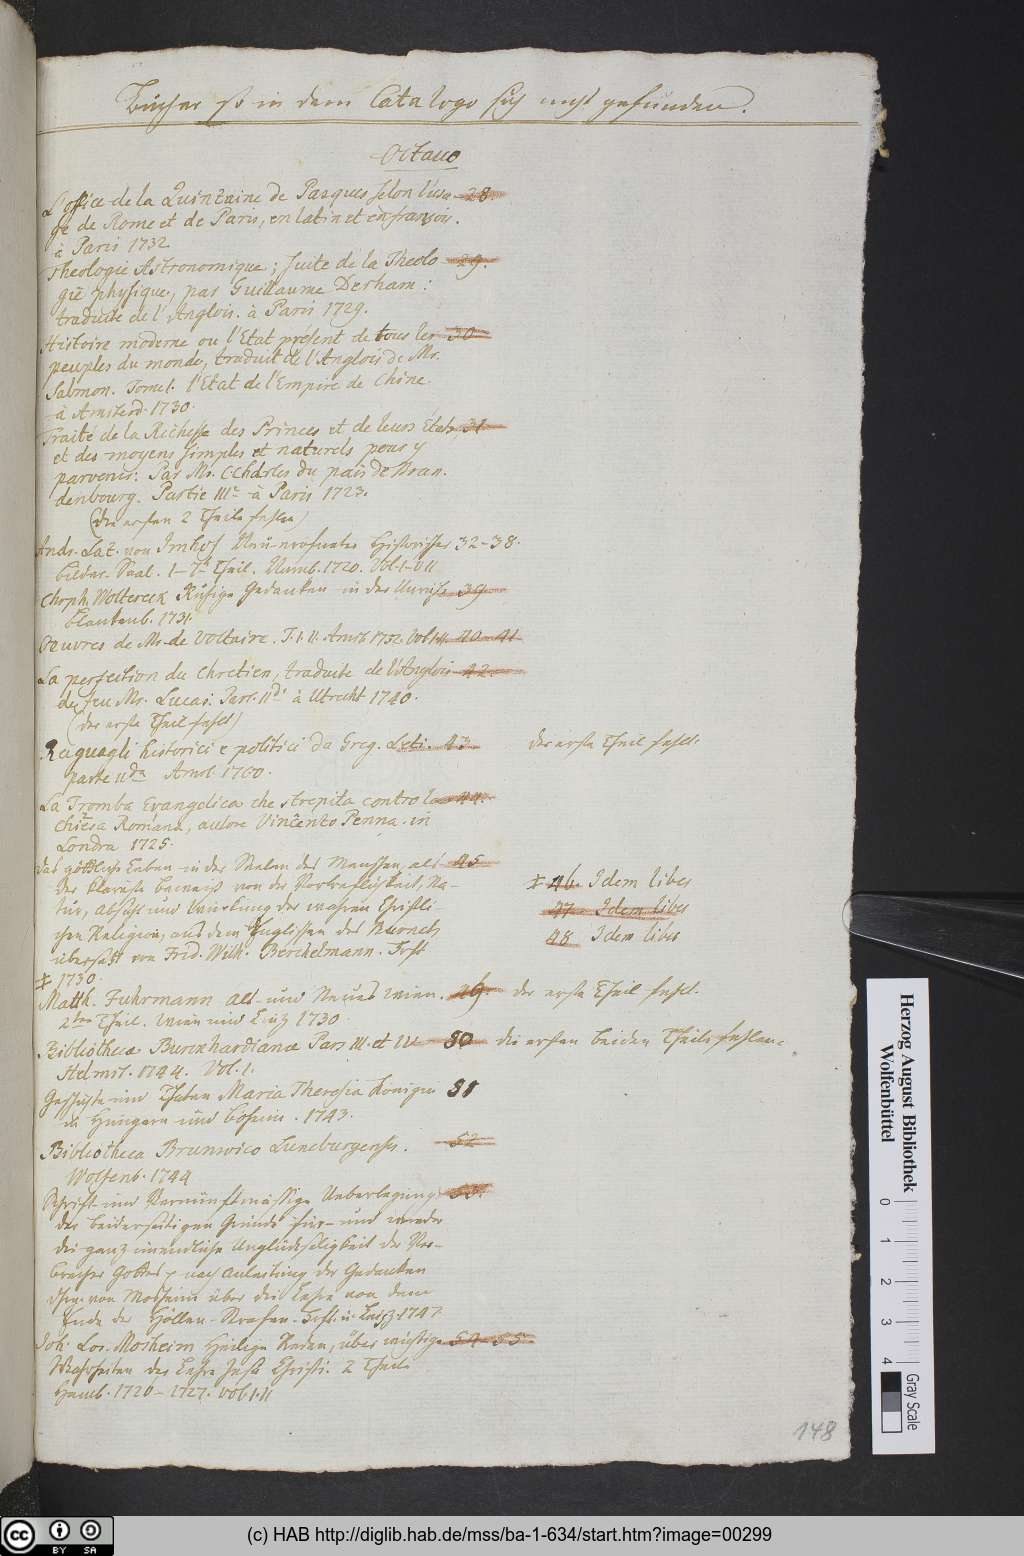 Bücher so in dem Catalogo sich nicht gefunden.
Octavo
L'office de la Quinzaine de Pasques selon l'usa- 28.
ge de Rome et de Paris, en latin et en françois.
à Paris 1732
Theologie Astronomique; suite de la Theolo 29.
gie physique, par Guillaume Derham:
traduite de l'Anglois. à Paris 1729.
Histoire moderne ou l'Etat present de tous les 30
peuples du monde, traduit de l'Anglois de Mr.
Salmon. Tome I. l'Etat de l'Empire de Chine
à Amsterd. 1730.
Traité de la Richesse des Princes et de leurs états, 31.
et des moyens simples et naturels pour y
parvenir: Par Mr. C. C. d. P. du païs de Bran.
denbourg. Partie III. à Paris 1723.
(die ersten 2 Theile fehlen)
Andr. Laz. von Imhof Neu-eröfneter Historischer 32-38.
Bilder-Saal. 1-7. Theil. Nürnb. 1720. Vol. I-VII
Chrph. Woltereck Ruhige Gedanken in der Unruhe 39.
Blankenb. 1731.
Oeuvres de Mr. de Voltaire. T. I. II. Amst. 1732. Vol. I. II. 40-41
La perfection du Chretien, traduite de l'Anglois 42.
de feu Mr. Lucas: Part. IIde à Utrecht 1740.
(der erste Theil fehlt)
Raguagli historici e politici da Greg. Leti. 43. der erste Theil fehlt.
parte IIda Amst. 1700.
La Tromba Evangelica che strepita contro la 44.
chiesa Romana, autore Vincento Penna. in
Londra 1725.
Das göttliche Leben in der Seelen des Menschen, als 45
der klareste beweiß von der Vortreflichkeit, Na-
tur, Absicht und Würkung der wahren Christli-
chen Religion, aus dem Englischen des Burnets
übersetzt von Frid. Wilh. Berchelmann.
1730.
46. Idem liber
47. Idem liber
48 Idem liber
Matth. Fuhrmann Alt- und Neues Wien. 49. der erste Theil fehlt.
2ter Theil. Wien und Linz 1730
Bibliotheca Burckhardiana Pars III. et IV. 50 die ersten beiden Theile fehlen.
Helmst. 1744. Vol. I.
Geschichte und Thaten Maria Theresia Königin 51
in Hungarn und Böheim. 1743.
Bibliotheca Brunsvico Luneburgensis. 52
Wolfenb. 1744
Schrift- und Vernunftmässige Ueberlegung 53.
der beiderseitigen Gründe für- und wieder
die ganz unendliche Unglückseeligkeit der Ver-
brecher Gottes nach Anleitung der Gedanken
von Mosheim über die Lehre von dem
Ende der Höllen-Strafen. 1747
Joh. Lor. Mosheim Heilige Reden, über wichtige 54-55
Wahrheiten der Lehre Jesu Christi. 2 Theile
Hamb. 1726-1727. Vol. I. II
148
Herzog August Bibliothek
Wolfenbüttel
0 1 2 3 4
Gray Scale
cc BY SA
(c) HAB http://diglib.hab.de/mss/ba-1-634/start.htm?image=00299